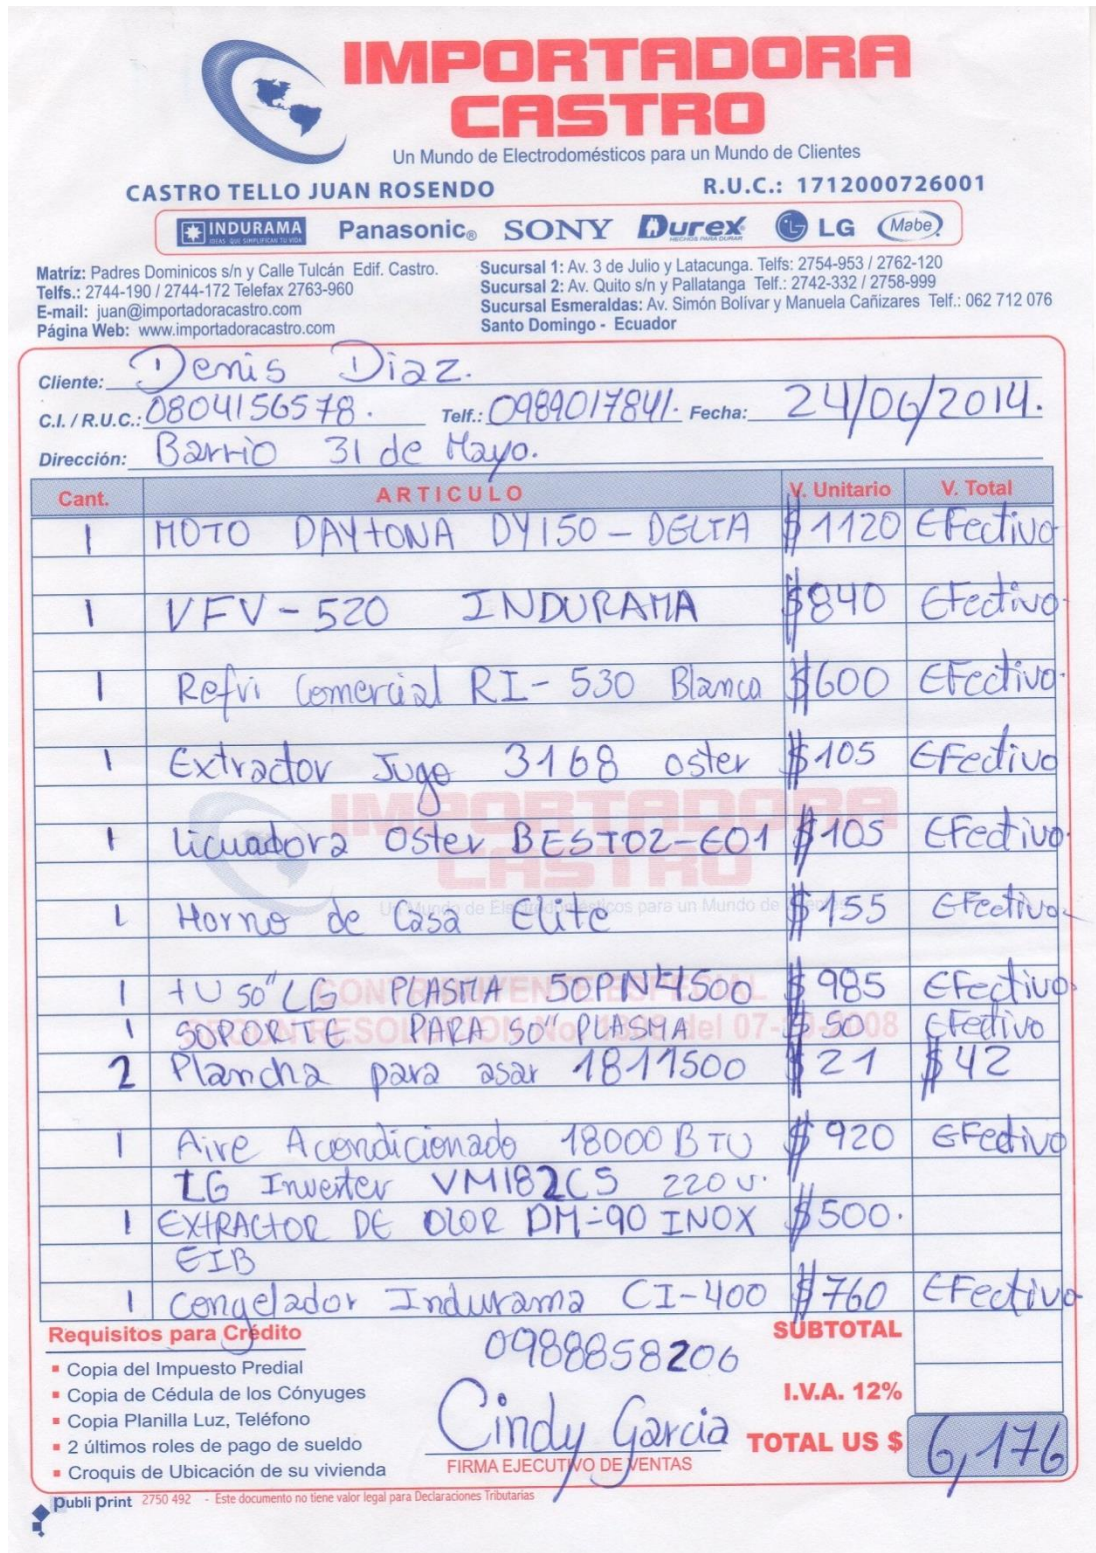 IMPORTADORA
CASTRO
Un Mundo de Electrodomésticos para un Mundo de Clientes
CASTRO TELLO JUAN ROSENDO R.U.C.: 1712000726001
INDURAMA Panasonic® SONY Durex LG Mabe
Matríz: Padres Dominicos s/n y Calle Tulcán Edif. Castro.
Telfs.: 2744-190 / 2744-172 Telefax 2763-960
E-mail: juan@importadoracastro.com
Página Web: www.importadoracastro.com
Sucursal 1: Av. 3 de Julio y Latacunga. Telfs: 2754-953 / 2762-120
Sucursal 2: Av. Quito s/n y Pallatanga Telf.: 2742-332 / 2758-999
Sucursal Esmeraldas: Av. Simón Bolívar y Manuela Cañizares Telf.: 062 712 076
Santo Domingo - Ecuador
Cliente: Denis Diaz.
C.I. / R.U.C.: 0804156578. Telf.: 0989017841. Fecha: 24/06/2014.
Dirección: Barrio 31 de Mayo.
Cant. ARTICULO V. Unitario V. Total
1 MOTO DAYTONA DY150-DELTA $1120 Efectivo
1 VFV-520 INDURAMA $840 Efectivo.
1 Refri Comercial RI-530 Blanca $600 Efectivo.
1 Extractor Jugo 3168 oster $105 Efectivo
1 Licuadora Oster BEST02-E01 $105 Efectivo.
1 Horno de Casa Elite $155 Efectivo.
1 TV 50" LG PLASMA 50PN4500 $985 Efectivo.
1 SOPORTE PARA 50" PLASMA $50 Efectivo
2 Plancha para asar 1811500 $21 $42
1 Aire Acondicionado 18000 BTU $920 Efectivo
LG Inverter VM182C5 220 v.
1 EXTRACTOR DE OLOR DM-90 INOX $500.
EIB
1 Congelador Indurama CI-400 $760 Efectivo
IMPORTADORA
CASTRO
Un Mundo de Electrodomésticos para un Mundo de
CONTRIBUYENTE ESPECIAL
Requisitos para Crédito
▪ Copia del Impuesto Predial
▪ Copia de Cédula de los Cónyuges
▪ Copia Planilla Luz, Teléfono
▪ 2 últimos roles de pago de sueldo
▪ Croquis de Ubicación de su vivienda
0988858206
Cindy Garcia
FIRMA EJECUTIVO DE VENTAS
SUBTOTAL
I.V.A. 12%
TOTAL US $ 6,176
Publi Print 2750 492 - Este documento no tiene valor legal para Declaraciones Tributarias